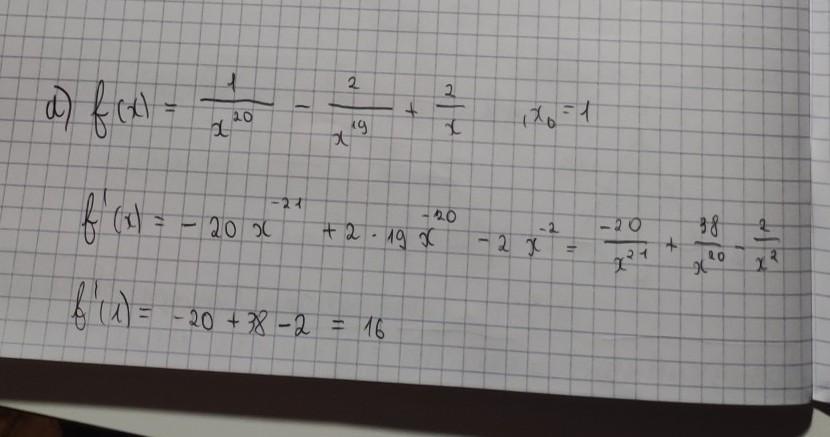 d) f(x) = 1/x^20 - 2/x^19 + 2/x , x₀ = 1
f'(x) = -20 x^-21 + 2 · 19 x^-20 - 2 x^-2 = -20/x^21 + 38/x^20 - 2/x^2
f'(1) = -20 + 38 - 2 = 16